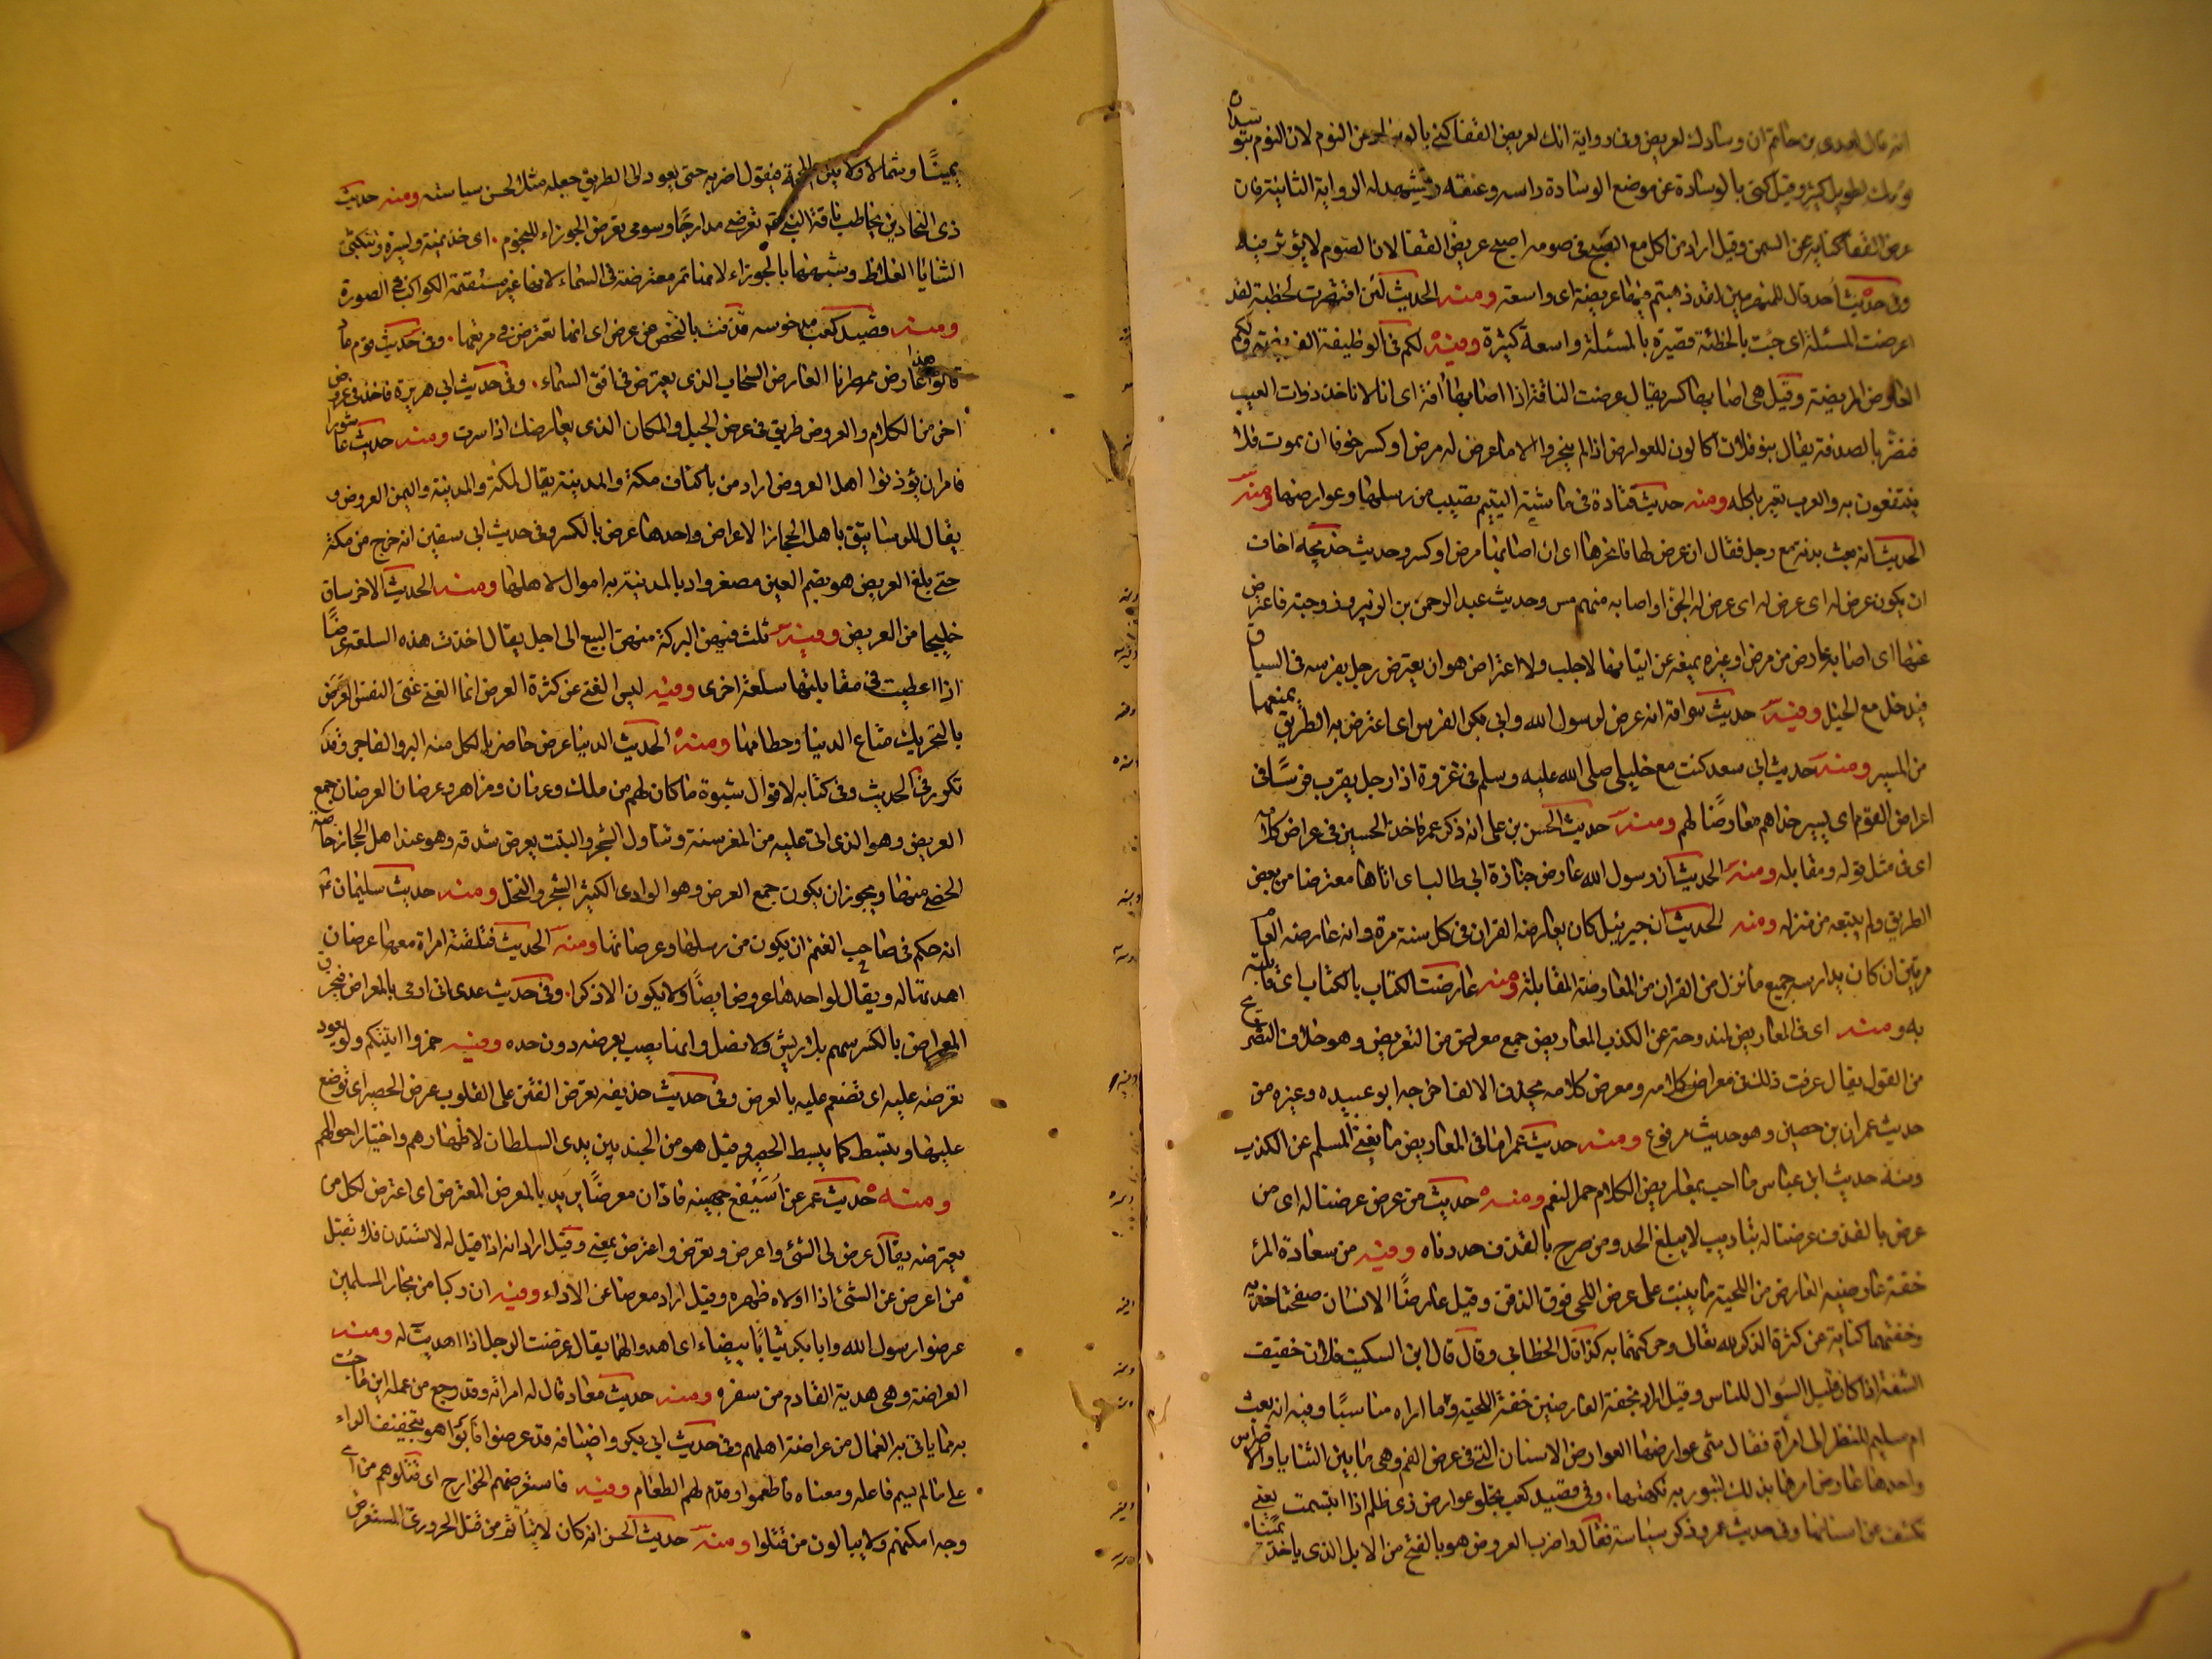 انه قال لعدى بن حاتم ان وسادك لعريض وفى رواية انك لعريض القفا كنى بالوساد عن النوم لان النوم يتوسد
عرض القفا كناية عن السمن وقيل اراد من اكل مع الصبح فى صومه اصبح عريض القفا لان الصوم لا يؤثر فيه
وفى حديث احد قال للمنهزمين لقد ذهبتم فيها عريضة اى واسعة ومنه الحديث لئن اقصرت الخطبة لقد
اعرضت المسئلة اى جئت بالخطبة قصيرة بالمسئلة واسعة كثيرة ومنه لكم فى الوظيفة الفريضة ولكم
العارض المريضة وقيل هى اصابها كسر يقال عرضت الناقة اذا اصابها افة اى انا لا ناخذ ذوات العيب
فنضر بالصدقة يقال بنو فلان اكالون للعوارض اذا لم ينحروا الا ما عرض له مرض او كسر خوفا ان يموت فلا
ينتفعون به والعرب تعير باكله ومنه حديث قتادة فى ماشية اليتيم يصيب من رسلها وعوارضها ومنه
الحديث انه بعث بدنه مع رجل فقال ان عرض لها فانحرها اى ان اصابها مرض او كسر وحديث خديجة اخاف
ان يكون عرض له اى عرض له الجن او اصابه منهم مس وحديث عبد الرحمن بن الزبير وزوجته فاعترض
عنها اى اصابه عارض من مرض او غيره يمنعه عن اتيانها لا جلب ولا اعتراض هو ان يعترض رجل بفرسه فى السباق
فيدخل مع الخيل وفيه حديث سراقة انه عرض لرسول الله وابى بكر الفرس اى اعترض به الطريق يمنعهما
من المسير ومنه حديث ابى سعد كنت مع خليلى صلى الله عليه وسلم فى غزوة اذا رجل يقرب فرسًا فى
اعراض القوم اى يسير حذاهم معارضًا لهم ومنه حديث الحسن بن على انه ذكر عمر فاخذ الحسين فى عراض كلامه
اى فى مثل قوله ومقابله ومنه الحديث ان رسول الله عارض جنازة ابى طالب اى اتاها معترضا من بعض
الطريق ولم يتبعه من منزله ومنه الحديث ان جبرئيل كان يعارضه القران فى كل سنة مرة وانه عارضه العام
مرتين ان كان يدارسه جميع ما نزل من القران من المعارضة المقابلة ومنه عارضت الكتاب بالكتاب اى قابلته
به ومنه اى فى المعاريض لمندوحة عن الكذب المعاريض جمع معراض من التعريض وهو خلاف التصريح
من القول يقال عرفت ذلك فى معراض كلامه ومعرض كلامه بحذف الالف اخرجه ابو عبيده وغيره من
حديث عمران بن حصين وهو حديث مرفوع ومنه حديث عمر اما فى المعاريض ما يغنى المسلم عن الكذب
ومنه حديث ابن عباس ما احب بمعاريض الكلام حمر النعم ومنه حديث من عرض عرضنا له اى من
عرض بالقذف عرضنا له بتاديب لا يبلغ الحد ومن صرح بالقذف حددناه وفيه من سعادة المرء
خفة عارضيه العارض من اللحية ما ينبت على عرض اللحى فوق الذقن وقيل عارضا الانسان صفحتا خديه
وخفتهما كناية عن كثرة الذكر لله تعالى وحركتهما به كذا قال الخطابى وقال قال ابن السكيت فلان خفيف
الشفة اذا كان قليل السؤال للناس وقيل اراد بخفة العارضين خفة اللحية وما اراه مناسبًا وفيه انه بعث
ام سليم لتنظر الى امراة فقال شمى عوارضها العوارض الاسنان التى فى عرض الفم وهى ما بين الثنايا والاضراس
واحدها عارض امرها بذلك لتبور به نكهتها . وفى قصيد كعب تجلو عوارض ذى ظلم اذا ابتسمت يعنى
تكشف عن اسنانها وفى حديث عمر وذكر سياسته فقال واضرب العروض هو بالفتح من الابل الذى ياخذ يمينًا
يمينًا وشمالا ولا يلزم المحجة فيقول اضربه حتى يعود الى الطريق جعله مثلا لحسن سياسته ومنه حديث
ذى البجادين يخاطب ناقة النبى تعرضى مدارجًا وسومى تعرض الجوزاء للنجوم . اى خذ يمنة ويسرة وتنكبى
الثنايا الغلاظ وشبهها بالجوزاء لانها تمر معترضة فى السماء لانها غير مستقيمة الكواكب فى الصورة
ومنه قصيد كعب مدخوسة قذفت بالنحض عن عرض اى انها تعترض فى مرتعها . وفى حديث قوم عاد
قالوا هذا عارض ممطرنا العارض السحاب الذى يعترض فى افق السماء . وفى حديث ابى هريرة فاخذ فى عروض
اخر من الكلام والعروض طريق فى عرض الجبل والمكان الذى يعارضك اذا سرت ومنه حديث عاشورا
فامر ان يؤذنوا اهل العروض اراد من باكناف مكة والمدينة يقال لمكة والمدينة واليمن العروض و
يقال للرساتيق باهل الحجاز الاعراض واحدها عرض بالكسر وفى حديث ابى سفين انه خرج من مكة
حتى بلغ العريض هو بضم العين مصغر واد بالمدينة به اموال لاهلها ومنه الحديث الاخر ساق
خليجا من العريض وفيه ثلث فيهن البركة منهن البيع الى اجل يقال اخذت هذه السلعة عرضًا
اذا اعطيت فى مقابلتها سلعة اخرى وفيه ليس الغنى عن كثرة العرض انما الغنى غنى النفس العرض
بالتحريك متاع الدنيا وحطامها ومنه الحديث الدنيا عرض حاضر ياكل منه البر والفاجر وقد
تكرر فى الحديث وفى كتابه لاقوال شبوة ما كان لهم من ملك وعرمان ومزاهر وعرضان العرضان جمع
العريض وهو الذى اتى عليه من المعز سنة وتناول الشجر والنبت بعرض شدقه وهو عند اهل الحجاز خاصة
الخصى منها ويجوز ان يكون جمع العرض وهو الوادى الكثير الشجر والنخل ومنه حديث سليمان
انه حكم فى صاحب الغنم ان يكون من رسلها وعرضانها ومنه الحديث فتلقته امراة معها عرضان
اهدتهما له ويقال لواحدها عروض ايضًا ولا يكون الا ذكرا . وفى حديث عدى انى ارمى بالمعراض فيخرق
المعراض بالكسر سهم بلا ريش ولا نصل وانما يصيب بعرضه دون حده وفيه خمروا انيتكم ولو بعود
تعرضه عليه اى تضعه عليه بالعرض وفى حديث حذيفه تعرض الفتن على القلوب عرض الحصير اى توضع
عليها وتبسط كما يبسط الحصير وقيل هو من الجند بين يدى السلطان لاظهارهم واختبار احوالهم
ومنه حديث عمر عن اسيفع جهينه فادان معرضًا يريد بالمعرض المعترض اى اعترض لكل من
يعترضه يقال عرض لى الشئ واعرض وتعرض واعترض بمعنى وقيل اراد انه اذا قيل له لا تستدن فلا تقبل
من اعرض عن الشئ اذا اولاه ظهره وقيل اراد معرضا عن الاداء وفيه ان ركبا من تجار المسلمين
عرضوا رسول الله وابا بكر ثيابًا بيضاء اى اهدوا لهما يقال عرضت الرجل اذا اهديت له ومنه
العراضة وهى هدية القادم من سفره ومنه حديث معاذ قال له امراته وقد رجع من عمله اين ما جئت
به مما ياتى به العمال من عراضة اهلهم وفى حديث ابى بكر واضيافه قد عرضوا فابوا هو بتخفيف الراء
على ما لم يسم فاعله ومعناه اطعموا وقدم لهم الطعام وفيه فاستعرضهم الخوارج اى قتلوهم من اى
وجه امكنهم ولا يبالون من قتلوا ومنه حديث الحسن انه كان لا يتاثم من قتل الحرورى المستعرض